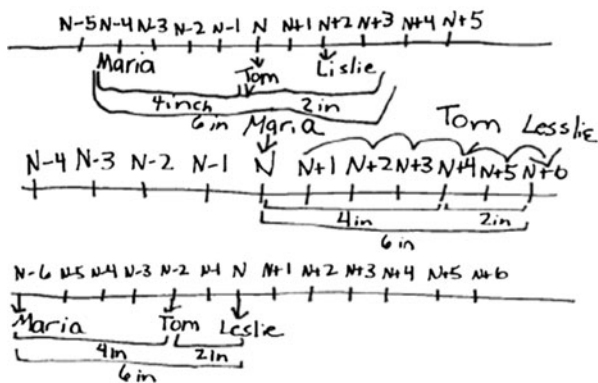 N-5 N-4 N-3 N-2 N-1 N N+1 N+2 N+3 N+4 N+5
Maria Tom Lislie
4inch 2in
6 in
Maria Tom Lesslie
N-4 N-3 N-2 N-1 N N+1 N+2 N+3 N+4 N+5 N+6
4in 2in
6 in
N-6 N-5 N-4 N-3 N-2 N-1 N N+1 N+2 N+3 N+4 N+5 N+6
Maria Tom Leslie
4in 2in
6 in